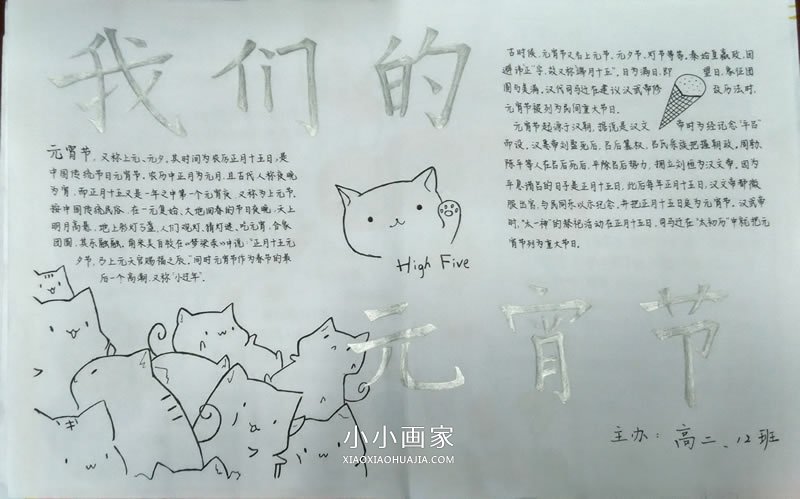 我们的
元宵节，又称上元、元夕，其时间为农历正月十五日，是
中国传统节日元宵节，农历中正月为元月，且古代人称夜晚
为宵，而正月十五又是一年之中第一个元宵夜，又称为上元节，
按中国传统民俗，在一元复始、大地回春的节日夜晚，天上
明月高悬，地上彩灯万盏，人们观灯、猜灯谜、吃元宵，合家
团圆，其乐融融，南宋吴自牧在《梦梁录》中说：“正月十五元
夕节，乃上元天官赐福之辰。”同时元宵节作为春节的最
后一个高潮，又称“小过年”。
High Five
古时候，元宵节又名上元节、元夕节、灯节等等，秦始皇嬴政，因
避讳正“字，故又称端月十五”，日为满日，即望日，象征团
圆与美满，汉代司马迁在建议汉武帝修改历法时，
元宵节被列为民间重大节日。
元宵节起源于汉朝，据说是汉文帝时为纪念“平吕”
而设，汉惠帝刘盈死后，吕后篡权，吕氏宗族把握朝政，周勃
陈平等人在吕后死后，平除吕后势力，拥立刘恒为汉文帝，因为
平息诸吕的日子是正月十五日，此后每年正月十五日，汉文帝都微
服出宫，与民同乐以示纪念，并把正月十五日定为元宵节。汉武帝
时，“太一神”的祭祀活动在正月十五日，司马迁在“太初历”中就把元
宵节列为重大节日。
元宵节
主办：高二、12班
小小画家
XIAOXIAOHUAJIA.COM